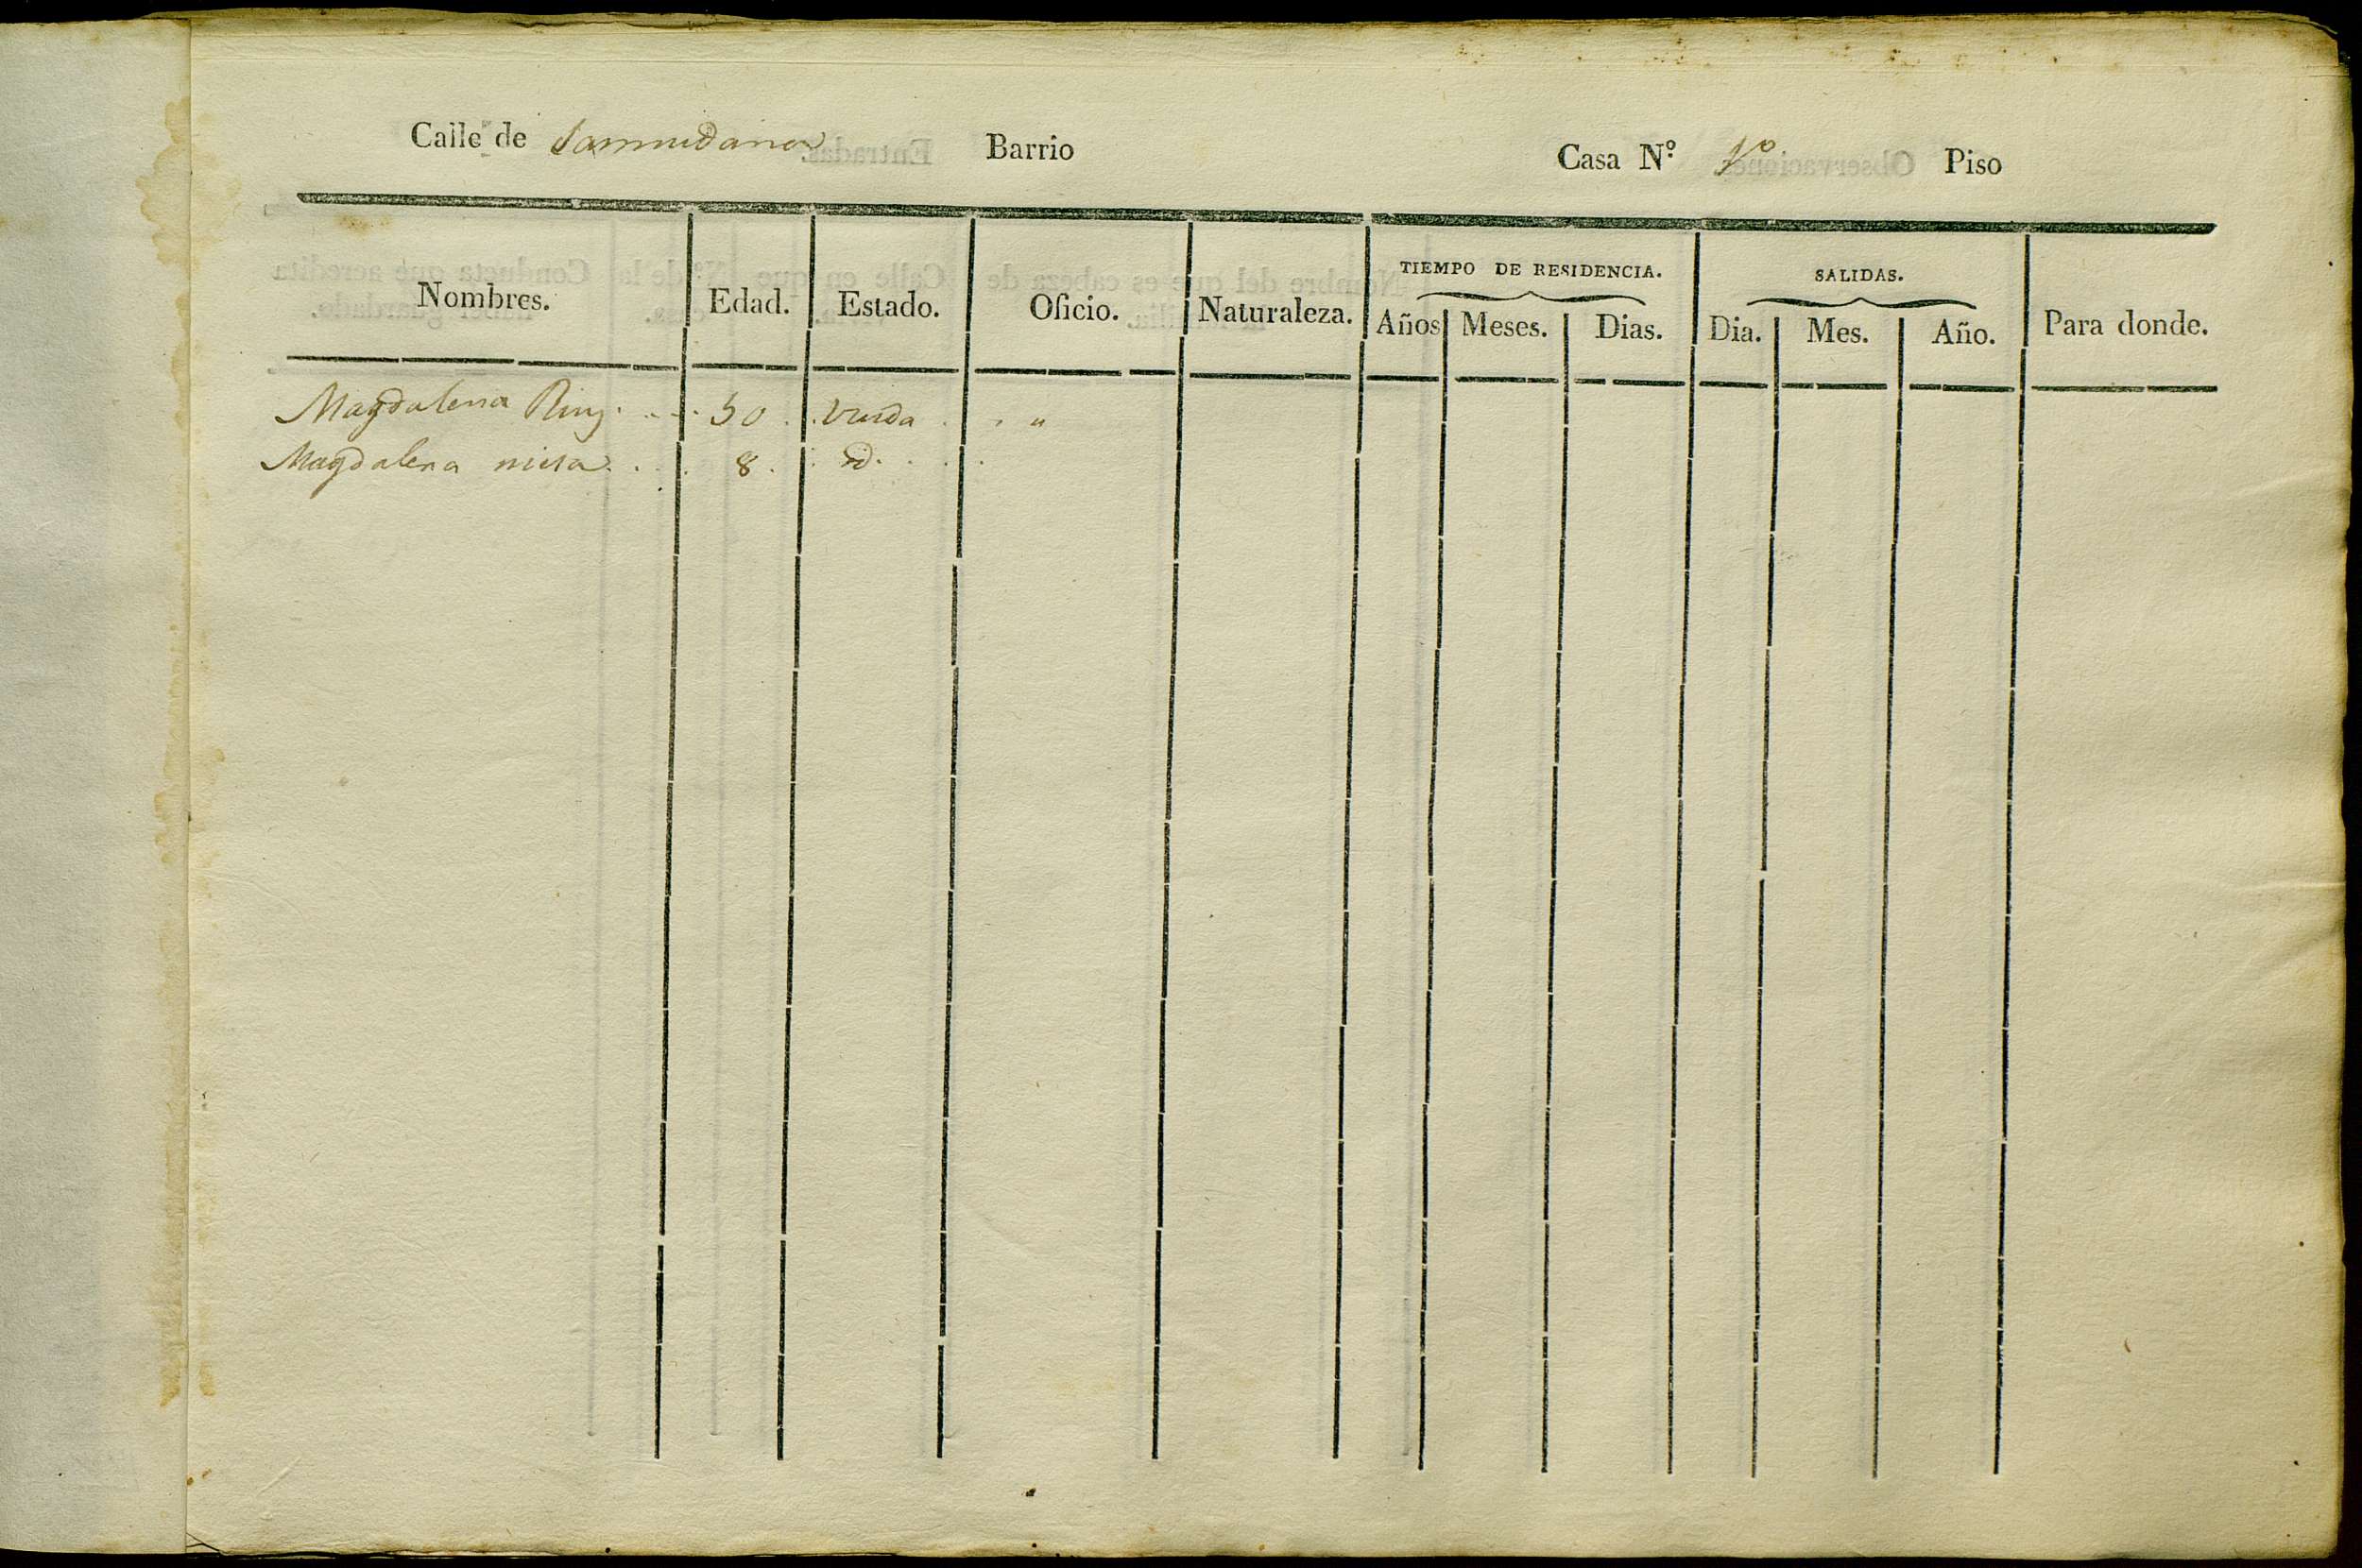 Calle de Barrio Casa Nº 1º Piso
Nombres. Edad. Estado. Oficio. Naturaleza. TIEMPO DE RESIDENCIA. SALIDAS. Para donde.
Años Meses. Dias. Dia. Mes. Año.
Magdalena . . . . 50 . . Viuda . . "
Magdalena nieta . . . 8 . . id . . . .